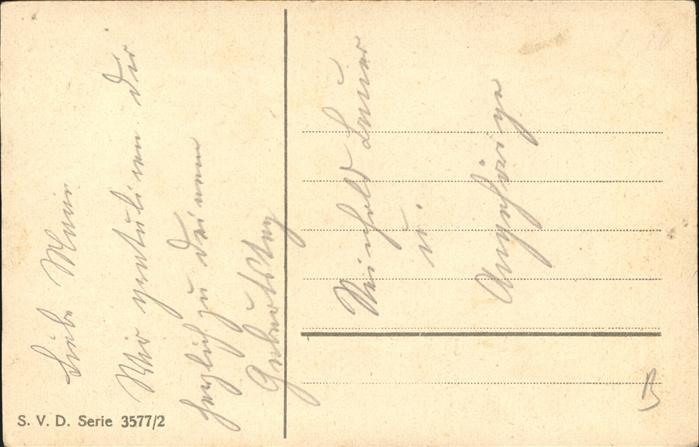 Liebe Marie
Wir gratulieren Dir
herzlich zu deinem
Geburtstag
Reinhold Lauer
u.
Angehörige
S. V. D. Serie 3577/2
B